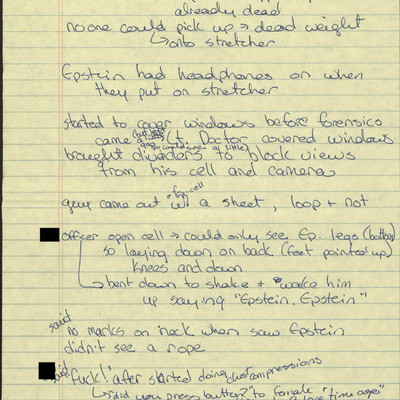 already dead
no one could pick up → dead weight
↳ onto stretcher
Epstein had headphones on when
they put on stretcher
started to cover windows before forensics
came Doctor covered windows
brought dividers to block views
from his cell and camera
guy came out of ep. cell w/ a sheet, loop + not
officer open cell → could only see Ep. legs (bottom)
so laying down on back (feet pointed up)
knees and down
↳ bent down to shake + wake him
up saying "Epstein, Epstein"
said no marks on neck when saw Epstein
didn't see a rope
said "fuck!" after started doing chest compressions
↳ "did you press button?" to female